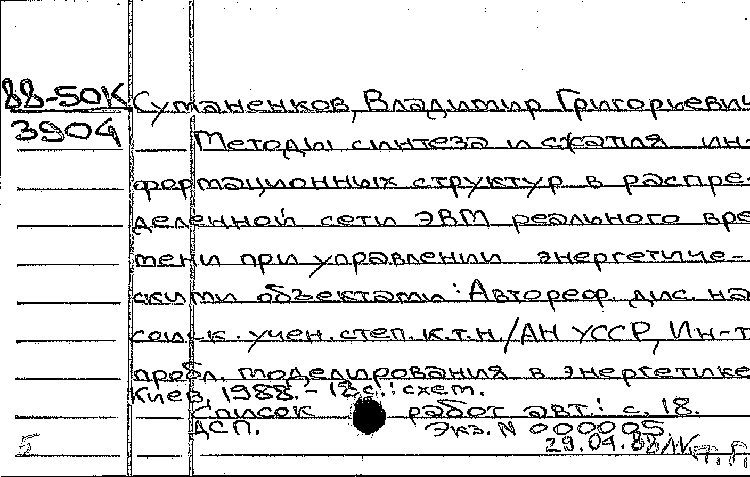 88-50К Сутаненков, Владимир Григорьевич
3904 Методы синтеза и сжатия ин-
формационных структур в распре-
деленной сети ЭВМ реального вре
мени при управлении энергетиче-
скими объектами: Автореф. дис. на
соиск. учен. степ. к.т.н. /АН УССР, Ин-т
пробл. моделирования в энергетике
Киев, 1988. - 18 с.: схем.
Список работ авт.: с. 18.
ДСП. Экз. N 000005
5 29.04.88